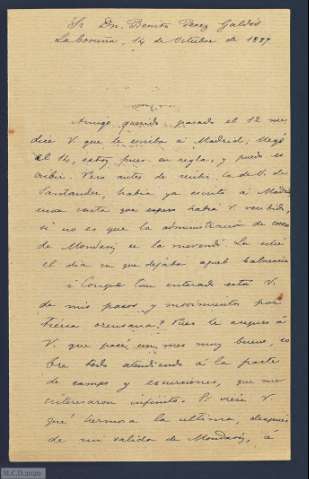 Sr Dn. Benito Perez Galdós
La Coruña, 14 de Octubre de 1887
Amigo querido, pasado el 12 me
dice V que le escriba á Madrid; llegó
el 14, estoy pues en regla, y puedo es
cribir. Pero antes de recibir la de V. de
Santander, había ya escrito á Madrid
una carta que espero habrá V. recibido,
si no es que la administración de
de Mondariz se la merendó. La
el día en que dejaba aquel balneario
¿Conque tan enterado está V.
de mis pasos y movimientos por
tierra orensana? Pues le aseguro á
V. que pasé un mes muy bueno, so
bre todo atendiendo á la parte
de campo y escursiones, que me
interesaron infinito. Si viese V
qué hermosa la última, después
de mi salida de Mondariz, á